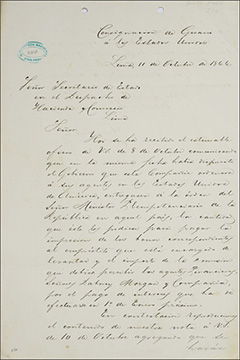 Consignacion de Guano
á los Estados Unidos
Lima 11 de Octubre de 1866
Señor Secretario de Estado
en el Despacho de
Hacienda y Comercio
Lima
Señor
Hoy se ha recibido el estimable
oficio de VS. de 8 de Octubre comunicando
que en la misma fecha habia dispuesto
el Gobierno que esta Compañia ordenará
á sus agentes en los Estados Unidos
de America, entreguen á la órden del
Señor Ministro Plenipotenciario de la
República en aquel pais, la cantidad
que este les pidiera para pagar la
impresion de los bonos correspondientes
al empréstito que está encargado de
levantar y el importe de la comision
que deban percibir los agentes financieros
Morgan y Compañia,
por el pago de intereses que ha de
efectuarse en 1º de Enero proximo.
En contestacion reproducimos
el contenido de nuestra nota á VS.
de 10 de Octubre agregando que se